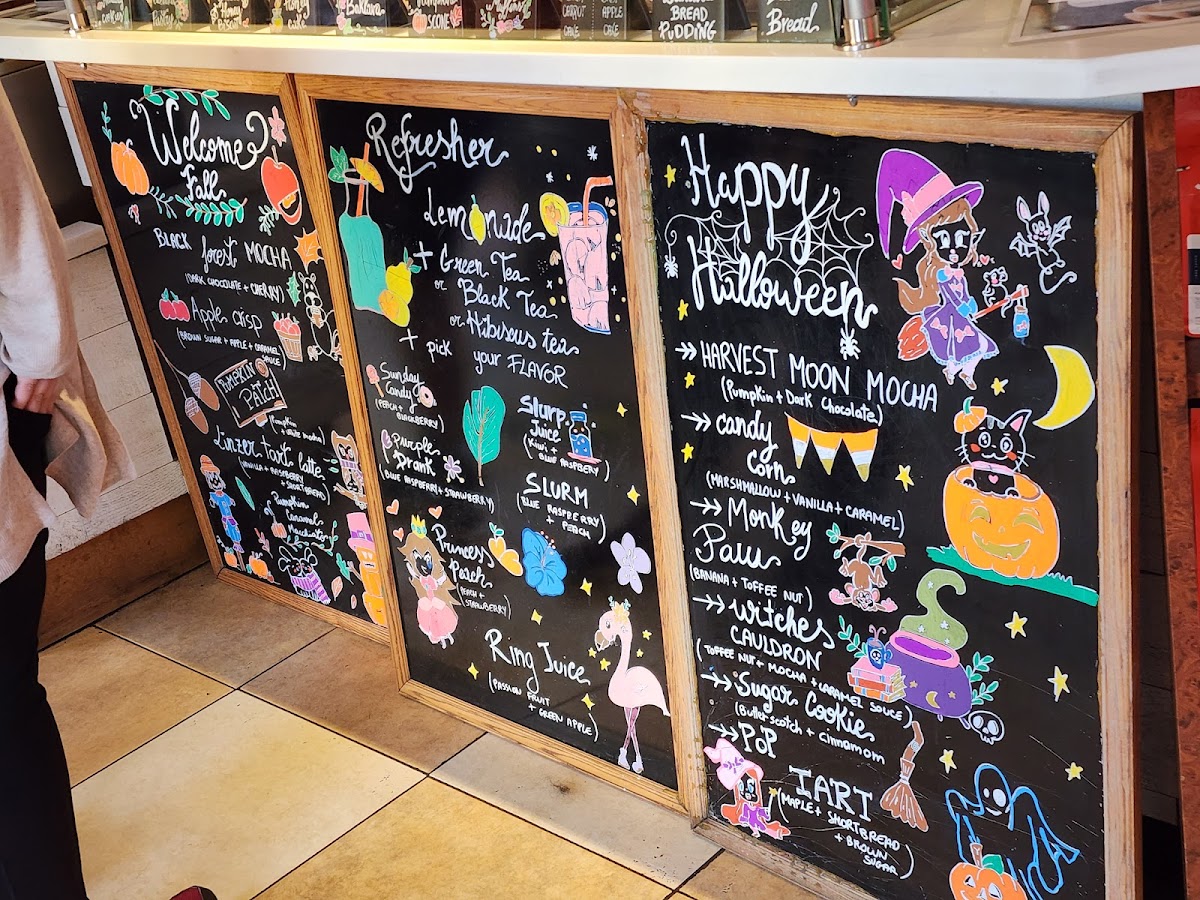 Baklava
SCONE
CARROT
CAKE
APPLE
CAKE
BREAD
PUDDING
Bread
Welcome
Fall
BLACK
forest MOCHA
(DARK CHOCOLATE + CHERRY)
Apple crisp
(BROWN SUGAR + APPLE + CARAMEL
SAUCE)
PUMPKIN
PATCH
(Pumpkin
+ white mocha)
Linzer tart latte
(VANILLA + RASPBERRY
+ SHORTBREAD)
Pumpkin
Caramel
Macchiato
Refresher
Lemonade
+ Green Tea
or Black Tea
or Hibiscus tea
+ pick
your FLAVOR
Sunday
Candy
(PEACH +
BLACKBERRY)
Purple
Drank
(BLUE RASPBERRY + STRAWBERRY)
Princess
Peach
(PEACH +
STRAWBERRY)
Slurp
Juice
(Kiwi +
BLUE RASPBERY)
SLURM
(BLUE RASPBERRY
+ PEACH)
Ring Juice
(PASSION FRUIT
+ GREEN APPLE)
Happy
Halloween
HARVEST MOON MOCHA
(Pumpkin + Dark Chocolate)
candy
corn
(MARSHMALLOW + VANILLA + CARAMEL)
Monkey
Paw
(BANANA + TOFFEE NUT)
witches
CAULDRON
(TOFFEE NUT + MOCHA + CARAMEL SOUCE)
Sugar Cookie
(Butter scotch + cinnamom
POP
TART
(MAPLE + SHORTBREAD
+ BROWN
SUGAR)